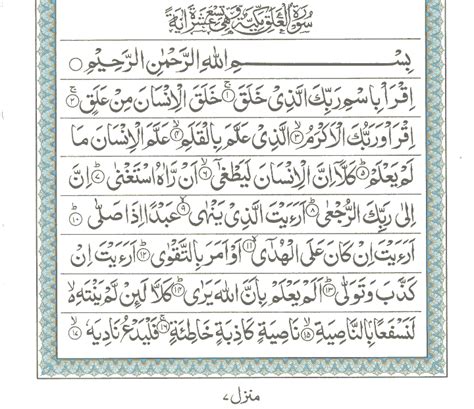 سُوْرَةُ الْعَلَقِ مَكِّيَّةٌ وَّهِيَ تِسْعَ عَشْرَةَ اٰيَةً
بِسْمِ اللهِ الرَّحْمٰنِ الرَّحِيْمِ ○
اِقْرَاْ بِاسْمِ رَبِّكَ الَّذِيْ خَلَقَ ﴿۱﴾ خَلَقَ الْاِنْسَانَ مِنْ عَلَقٍ ﴿۲﴾
اِقْرَاْ وَرَبُّكَ الْاَكْرَمُ ﴿۳﴾ الَّذِيْ عَلَّمَ بِالْقَلَمِ ﴿۴﴾ عَلَّمَ الْاِنْسَانَ مَا
لَمْ يَعْلَمْ ﴿۵﴾ كَلَّاۤ اِنَّ الْاِنْسَانَ لَيَطْغٰۤى ﴿۶﴾ اَنْ رَّاٰهُ اسْتَغْنٰى ﴿۷﴾ اِنَّ
اِلٰى رَبِّكَ الرُّجْعٰى ﴿۸﴾ اَرَءَيْتَ الَّذِيْ يَنْهٰى ﴿۹﴾ عَبْدًا اِذَا صَلّٰى ﴿۱۰﴾
اَرَءَيْتَ اِنْ كَانَ عَلَى الْهُدٰۤى ﴿۱۱﴾ اَوْ اَمَرَ بِالتَّقْوٰى ﴿۱۲﴾ اَرَءَيْتَ اِنْ
كَذَّبَ وَتَوَلّٰى ﴿۱۳﴾ اَلَمْ يَعْلَمْ بِاَنَّ اللهَ يَرٰى ﴿۱۴﴾ كَلَّا لَئِنْ لَّمْ يَنْتَهِ ۙ
لَنَسْفَعًۢا بِالنَّاصِيَةِ ﴿۱۵﴾ نَاصِيَةٍ كَاذِبَةٍ خَاطِئَةٍ ﴿۱۶﴾ فَلْيَدْعُ نَادِيَهٗ ﴿۱۷﴾
منزل ۷